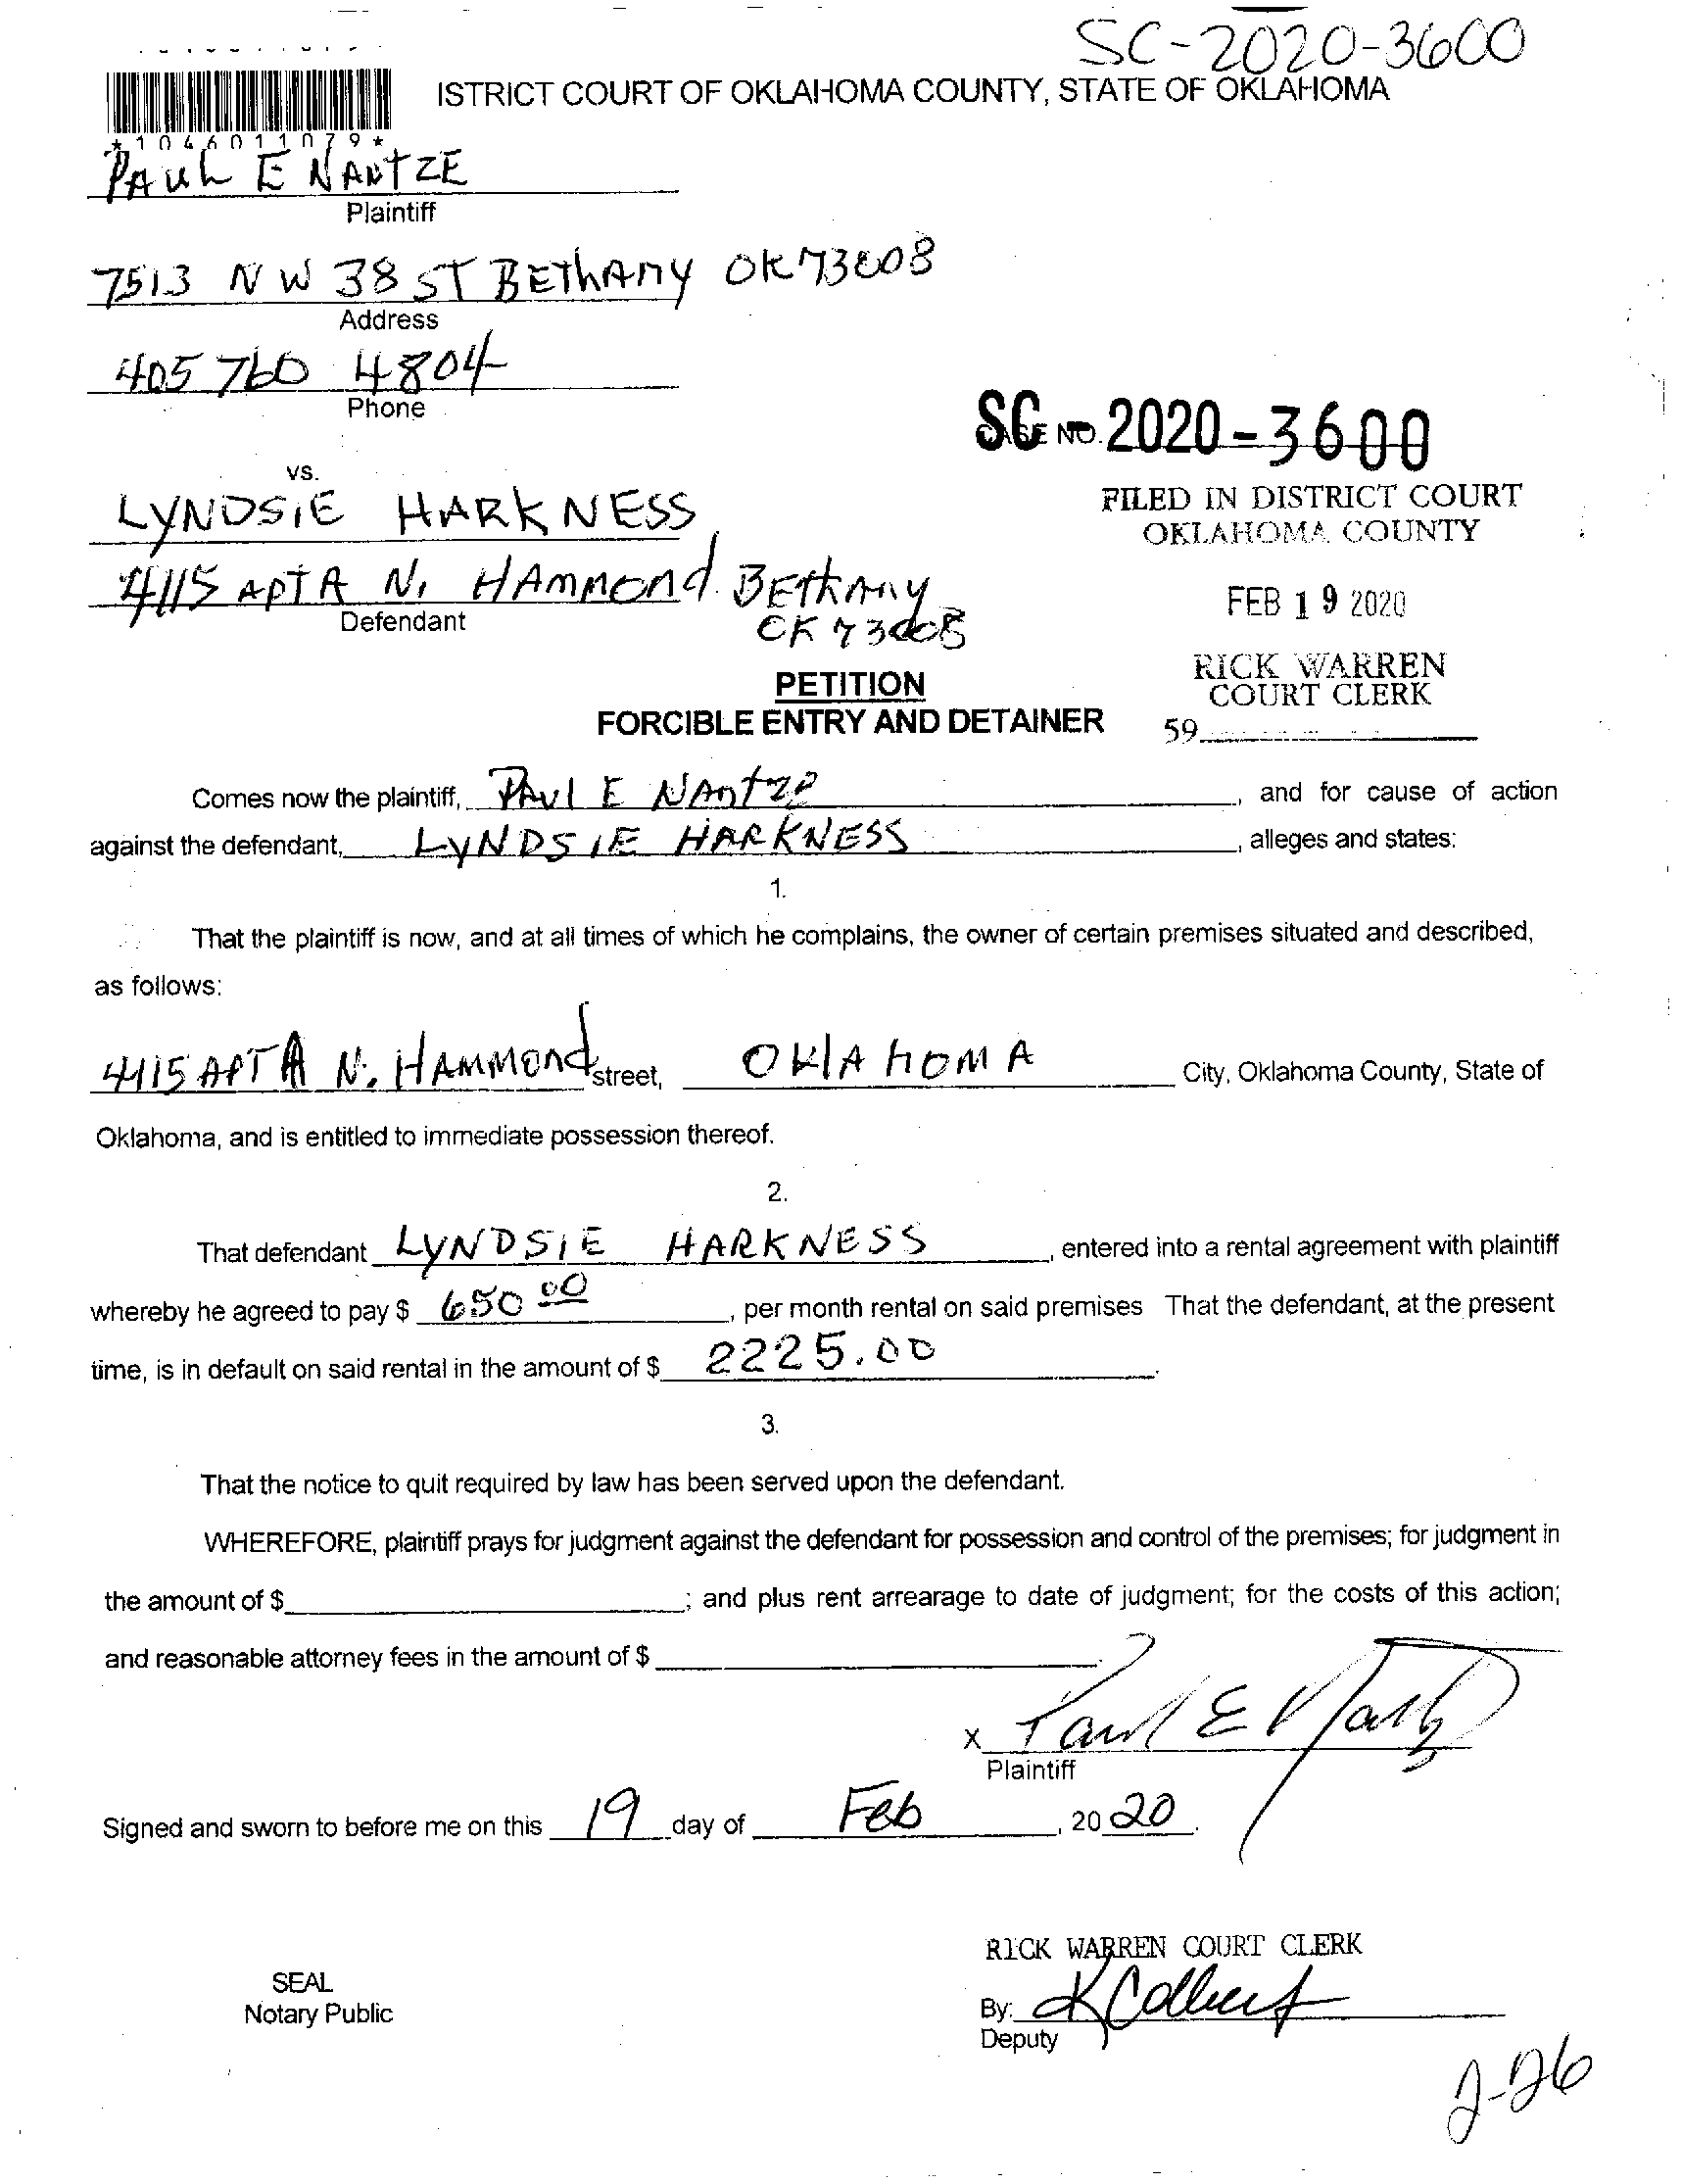 SC-2020-3600
ISTRICT COURT OF OKLAHOMA COUNTY, STATE OF OKLAHOMA
*1046011079*
PAUL E NANTZE
Plaintiff
7513 NW 38 ST BEThANY OK 73008
Address
405 760 4804
Phone
SC-2020-3600
CASE NO.
vs.
LYNDSIE HARKNESS
FILED IN DISTRICT COURT
OKLAHOMA COUNTY
4115 APT A N. HAMMOND BETHANY
OK 73008
Defendant
FEB 19 2020
RICK WARREN
COURT CLERK
59
PETITION
FORCIBLE ENTRY AND DETAINER
Comes now the plaintiff, PAUL E NANTZE, and for cause of action
against the defendant, LYNDSIE HARKNESS, alleges and states:
1.
That the plaintiff is now, and at all times of which he complains, the owner of certain premises situated and described,
as follows:
4115 APT A N. HAMMOND street, OKlAhOMA City, Oklahoma County, State of
Oklahoma, and is entitled to immediate possession thereof.
2.
That defendant LYNDSIE HARKNESS, entered into a rental agreement with plaintiff
whereby he agreed to pay $ 650 00, per month rental on said premises That the defendant, at the present
time, is in default on said rental in the amount of $ 2225.00.
3.
That the notice to quit required by law has been served upon the defendant.
WHEREFORE, plaintiff prays for judgment against the defendant for possession and control of the premises; for judgment in
the amount of $ ; and plus rent arrearage to date of judgment; for the costs of this action;
and reasonable attorney fees in the amount of $ .
x Paul E Nantz
Plaintiff
Signed and sworn to before me on this 19 day of Feb, 20 20.
RICK WARREN COURT CLERK
SEAL
Notary Public
By: K Colbert
Deputy
2-26